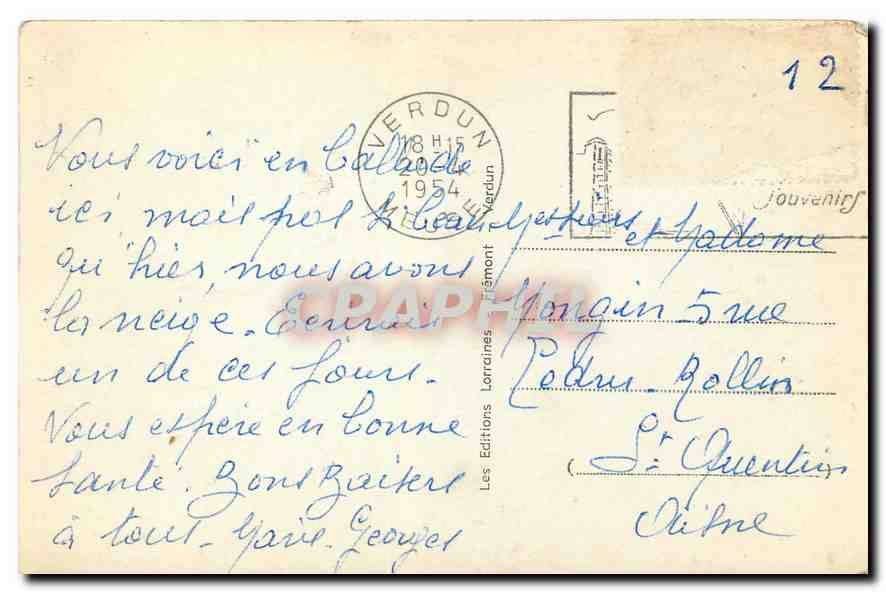 12
VERDUN
18 H 15
20-4
1954
MEUSE
souvenirs
Vous voici en balade
ici mais pas si beau
qu'hier, nous avons
la neige. Ecrirais
un de ces jours.
Vous espère en bonne
santé. Bons Baisers
à tous. Georges
Les Editions Lorraines Frémont Verdun
Messieurs et Madame
Mongin 5 rue
Ledru-Rollin
St Quentin
Aisne
CPAPHIL